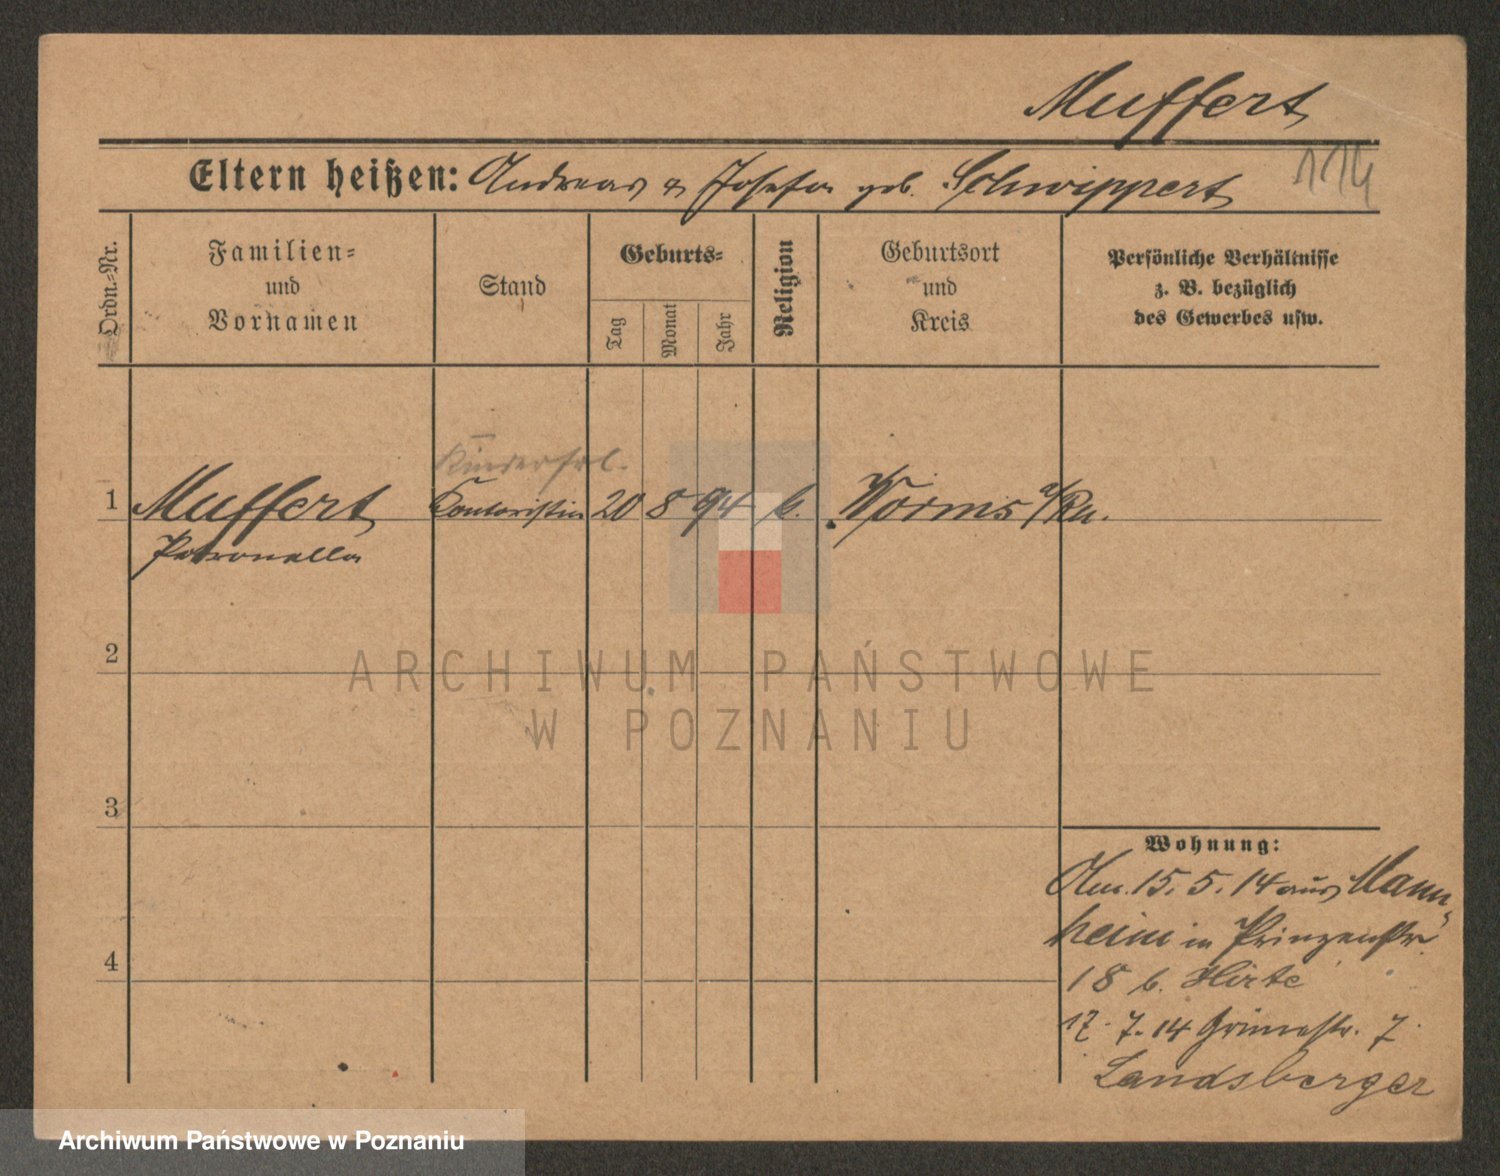 Muffert
114
Eltern heißen: Andreas u. Josefa geb. Schwippert
Ordn.-Nr.
Familien=
und
Vornamen
Stand
Geburts=
Tag
Monat
Jahr
Religion
Geburtsort
und
Kreis
Persönliche Verhältnisse
z. B. bezüglich
des Gewerbes usw.
Kinderfrl.
1 Muffert Kontoristin 20 8 94 k. Worms a/Rh.
Petronella
2
3
4
Wohnung:
Am. 15. 5. 14 aus Mann=
heim in Prinzenstr.
18 b. Hirte
17. 7. 14 7
Landsberger
ARCHIWUM PAŃSTWOWE
W POZNANIU
Archiwum Państwowe w Poznaniu